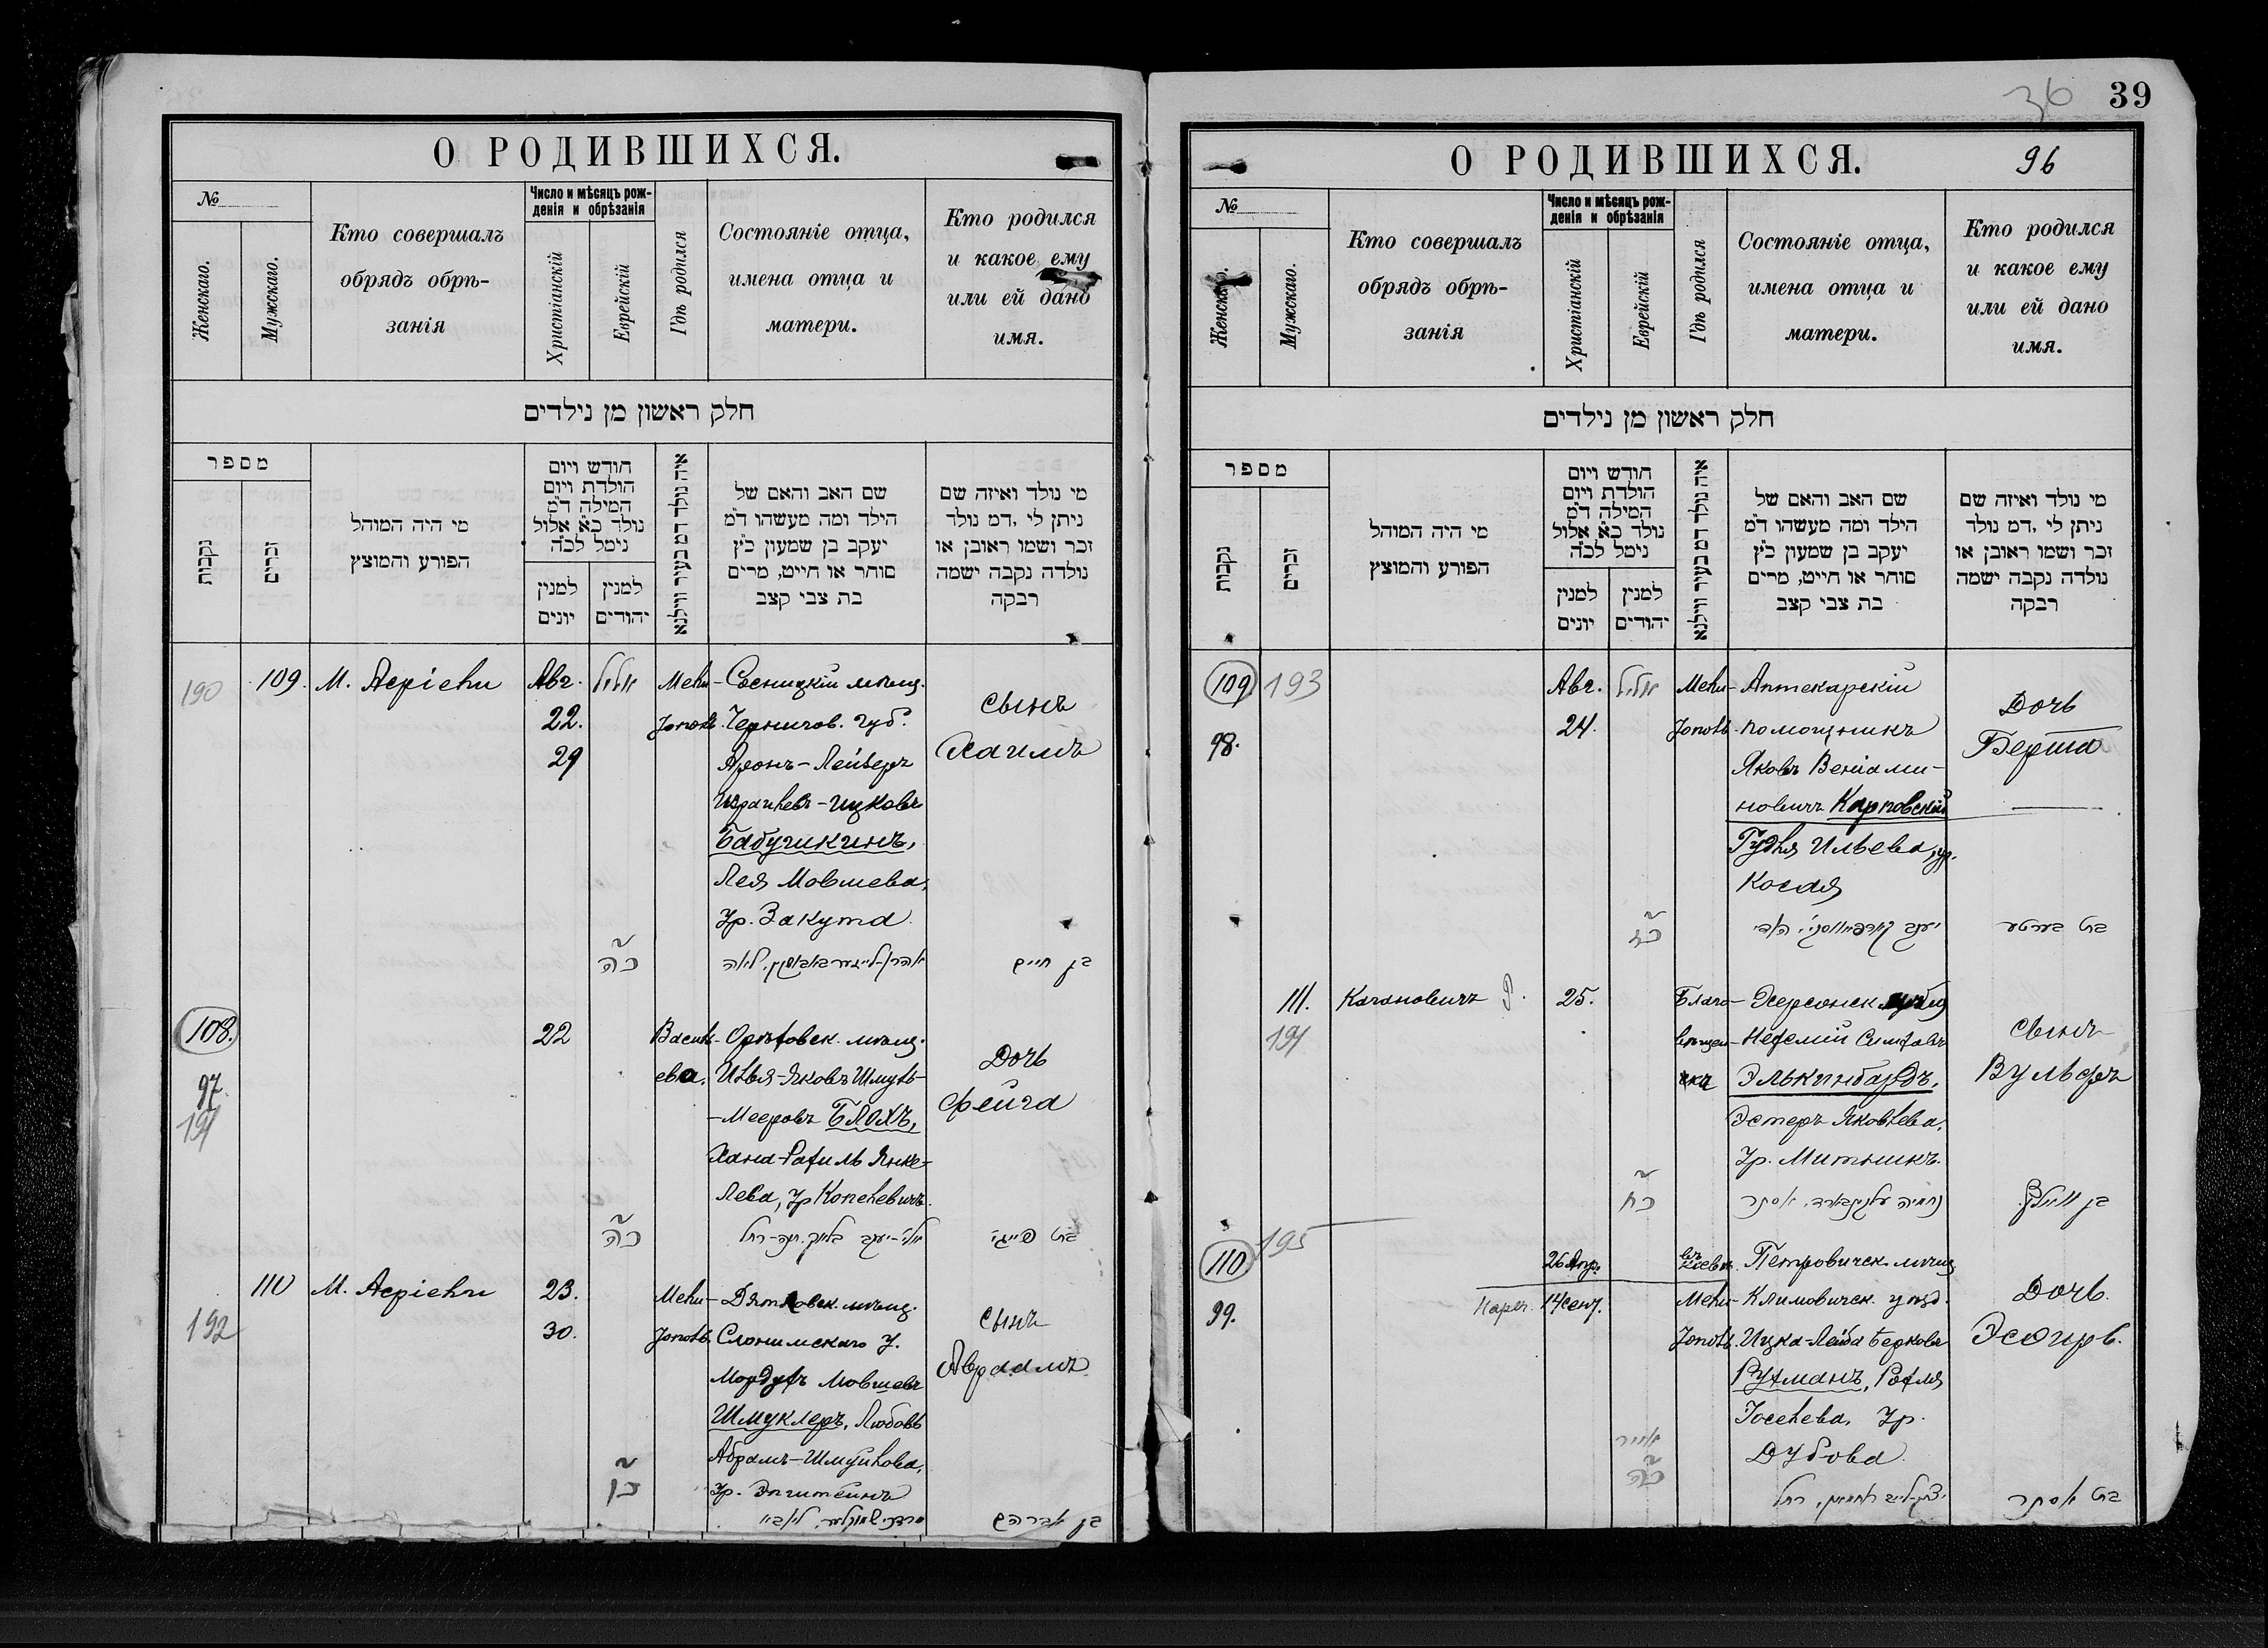 О РОДИВШИХСЯ.
№
Женскаго.
Мужскаго.
Кто совершалъ
обрядъ обрѣ-
занія
Число и мѣсяцъ рож-
денія и обрѣзанія
Христіанскій
Еврейскій
Гдѣ родился
Состояніе отца,
имена отца и
матери.
Кто родился
и какое ему
или ей дано
имя.
חלק ראשון מן נילדים
מספר
נקבות
זכרים
מי היה המוהל
הפורע והמוצץ
חודש ויום
הולדת ויום
המילה ד״מ
נולד כ״א אלול
נימל לכ״ה
למנין
יונים
למנין
יהודים
איה נולד דמ בעיר ווילנא
שם האב והאם של
הילד ומה מעשהו ד״מ
יעקב בן שמעון כ״ץ
סוחר או חייט, מרים
בת צבי קצב
מי נולד ואיזה שם
ניתן לי, דמ נולד
זכר ושמו ראובן או
נולדה נקבה ישמה
רבקה
190
109.
М.
Авг.
אלול
22.
29
Сосницкій мѣщ.
Чернигов. губ.
Аронъ-Лейзеръ
Израилевъ-Ицковъ
Бабушкинъ,
Лея Мовшева,
ур. Закута
Сынъ
Хаимъ
כה
בן חיים
108.
97.
191
22
Васил-
ева.
мѣщ.
Илья-Яковъ Шмуль-
-Мееровъ Блохъ,
Хана-Рахиль Янке-
лева, ур Копелевичъ.
Дочь
Фейга
כה
192
110
М.
23.
30.
мѣщ.
Слонимскаго у.
Мордухъ Мовшевъ
Шмуклеръ, Любовь
Абрамъ-Шмуйлова,
ур. Эпштейнъ
Сынъ
Авраамъ
בן אברהם
36
39
О РОДИВШИХСЯ.
96
№
Женскаго.
Мужскаго.
Кто совершалъ
обрядъ обрѣ-
занія
Число и мѣсяцъ рож-
денія и обрѣзанія
Христіанскій
Еврейскій
Гдѣ родился
Состояніе отца,
имена отца и
матери.
Кто родился
и какое ему
или ей дано
имя.
חלק ראשון מן נילדים
מספר
נקבות
זכרים
מי היה המוהל
הפורע והמוצץ
חודש ויום
הולדת ויום
המילה ד״מ
נולד כ״א אלול
נימל לכ״ה
למנין
יונים
למנין
יהודים
איה נולד דמ בעיר ווילנא
שם האב והאם של
הילד ומה מעשהו ד״מ
יעקב בן שמעון כ״ץ
סוחר או חייט, מרים
בת צבי קצב
מי נולד ואיזה שם
ניתן לי, דמ נולד
זכר ושמו ראובן או
נולדה נקבה ישמה
רבקה
109
193
98.
Авг.
אלול
24.
Аптекарскій
помощникъ
Яковъ Веніами-
новичъ Карповскій
Ильева, ур.
Косая
Дочь
Берта
בת בערטע
111.
191
Кагановичъ
25.
Благо-
вѣщен-
ска
Херсонск.
Нехемій
Элькинбардъ,
Эстеръ Яковлева,
ур. Митникъ.
Сынъ
Вульфъ
כח
110
195
99.
26 Апр.
Нареч. 14 сент.
Петровичск. мѣщ
Климовичск. уѣзд.
Ицка-Лейба Берковъ
Рухманъ, Рахля
Іоселева, ур.
Дубова
Дочь.
Эсѳирь.
אייר
כה
בת אסתר